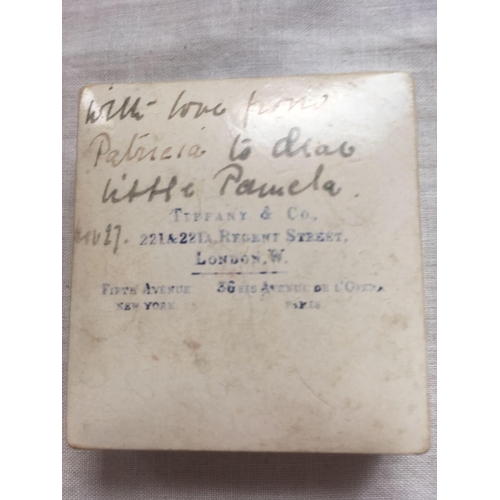 With love from
Patricia to dear
little Pamela.
TIFFANY & CO.
Nov 27. 221 & 221A, REGENT STREET,
LONDON, W.
FIFTH AVENUE 36 BIS AVENUE DE L'OPERA
NEW YORK. PARIS.